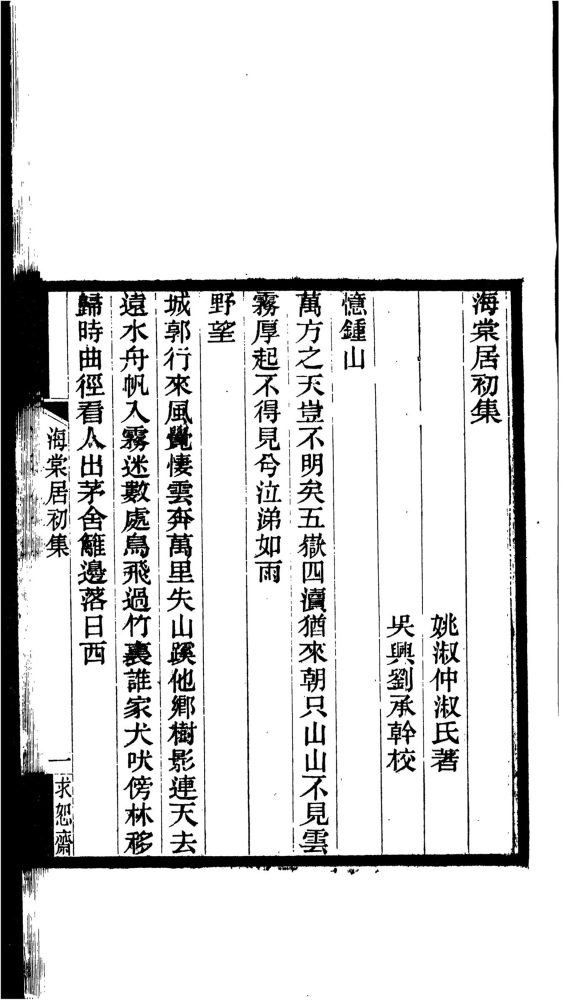 海棠居初集
姚淑仲淑氏著
吳興劉承幹校
憶鍾山
萬方之天豈不明矣五嶽四瀆猶來朝只山山不見雲
霧厚起不得見兮泣涕如雨
野望
城郭行來風覺悽雲奔萬里失山蹊他鄉樹影連天去
遠水舟帆入霧迷數處鳥飛過竹裏誰家犬吠傍林移
歸時曲徑看人出茅舍籬邊落日西
海棠居初集
一
求恕齋